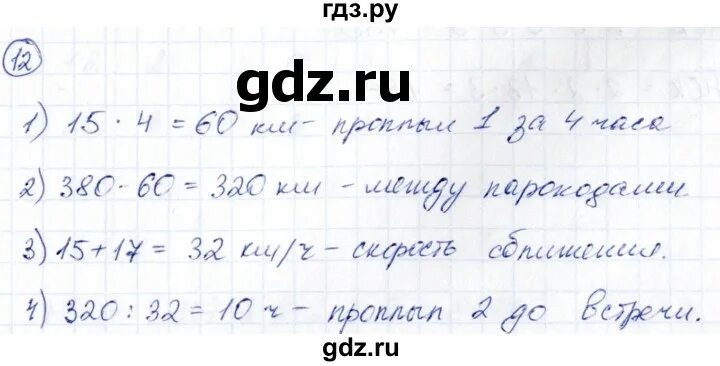 гдз.ру
12
gdz.ru
1) 15 · 4 = 60 км - проплыл 1 за 4 часа
2) 380 - 60 = 320 км - между пароходами.
3) 15 + 17 = 32 км/ч - скорость сближения.
4) 320 : 32 = 10 ч - проплыл 2 до встречи.
gdz.ru